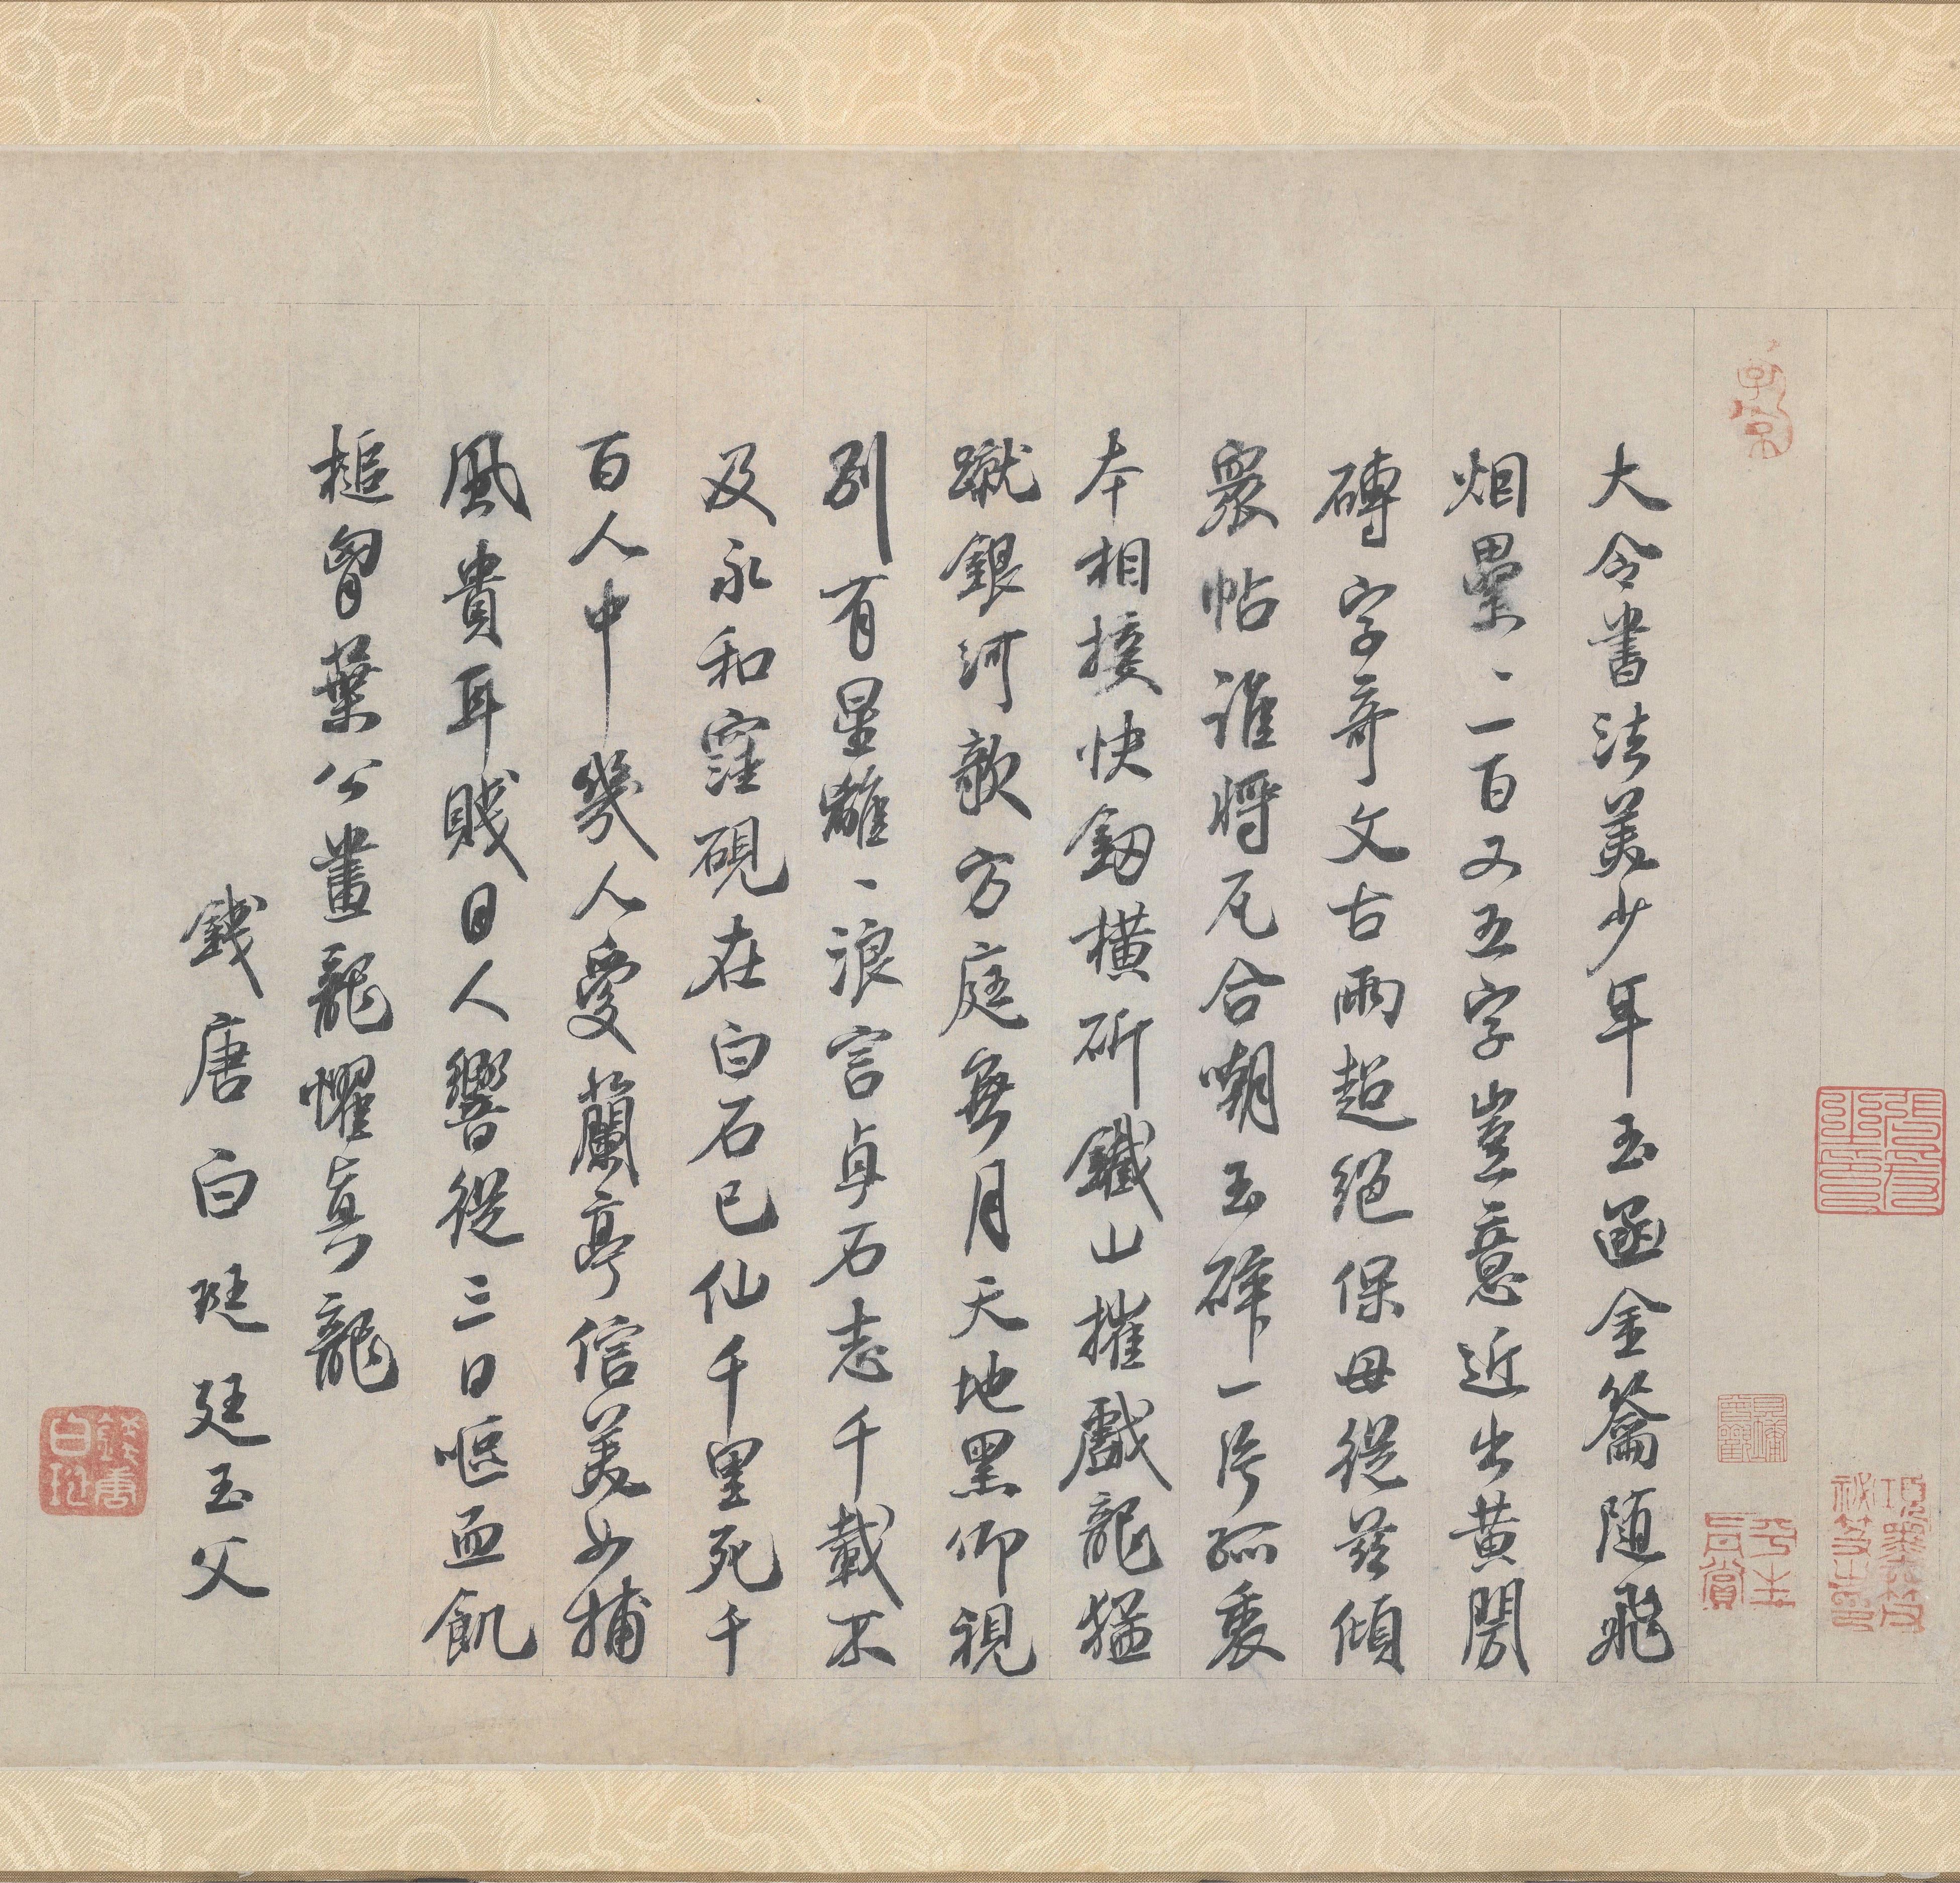 大令書法美少年玉函金籥随飛
烟壘〻二百又五字豈意近出黄閍
磚字奇文古兩超絕保母從茲傾
衆帖誰将瓦合嘲玉碎一片孤裏
本相接快劒橫斫鐵山摧戲龍猛
蹴銀河歌方庭無月天地黑仰視
别有星離〻浪言貞石志千載不
及永和窪硯在白石已仙千里死千
百人中幾人愛蘭亭信美如捕
風貴耳賤目人響從三日嘔血飢
槌胷葉公畫龍懼真龍
錢唐白珽廷玉父
錢唐白珽